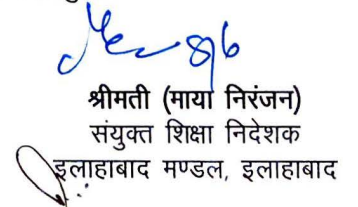 8/6
श्रीमती (माया निरंजन)
संयुक्त शिक्षा निदेशक
इलाहाबाद मण्डल, इलाहाबाद